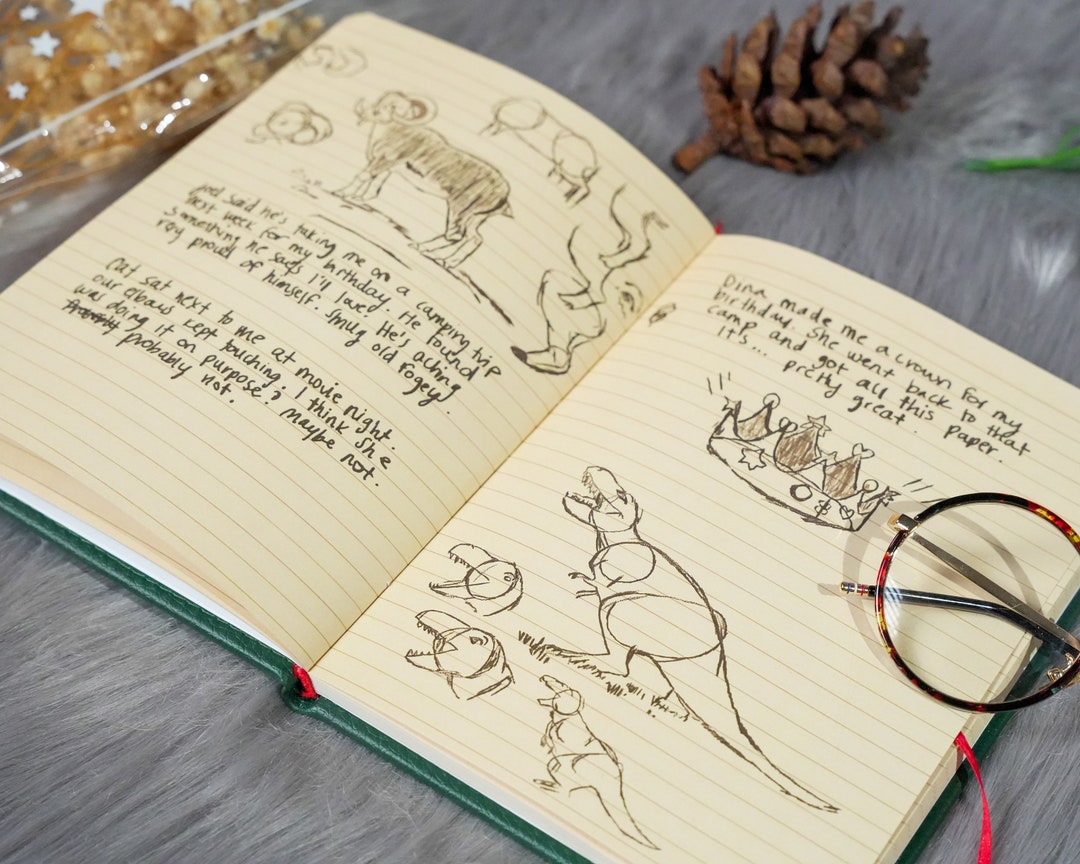 Joel said he's taking me on a camping trip
next week for my birthday. He found
something he says I'll love. He's acting
proud of himself. Smug old fogey!
Cat sat next to me at movie night.
our elbows kept touching. I think she
was doing it on purpose? Maybe not.
Probably probably not.
Dina made me a crown for my
birthday. She went back to that
camp and got all this paper.
It's... pretty great.